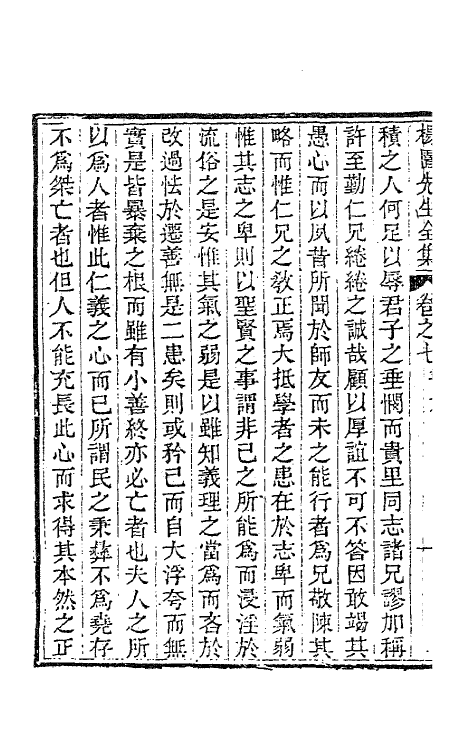 楊園先生全集 卷之七
積之人何足以辱君子之垂憫而貴里同志諸兄謬加稱
許至勤仁兄綣綣之誠哉顧以厚誼不可不答因敢竭其
愚心而以夙昔所聞於師友而未之能行者為兄敬陳其
略而惟仁兄之敎正焉大抵學者之患在於志卑而氣弱
惟其志之卑則以聖賢之事謂非己之所能為而浸淫於
流俗之是安惟其氣之弱是以雖知義理之當為而吝於
改過怯於遷善無是二患矣則或矜己而自大浮夸而無
實是皆暴棄之根而雖有小善終亦必亡者也夫人之所
以為人者惟此仁義之心而已所謂民之秉彝不為堯存
不為桀亡者也但人不能充長此心而求得其本然之正